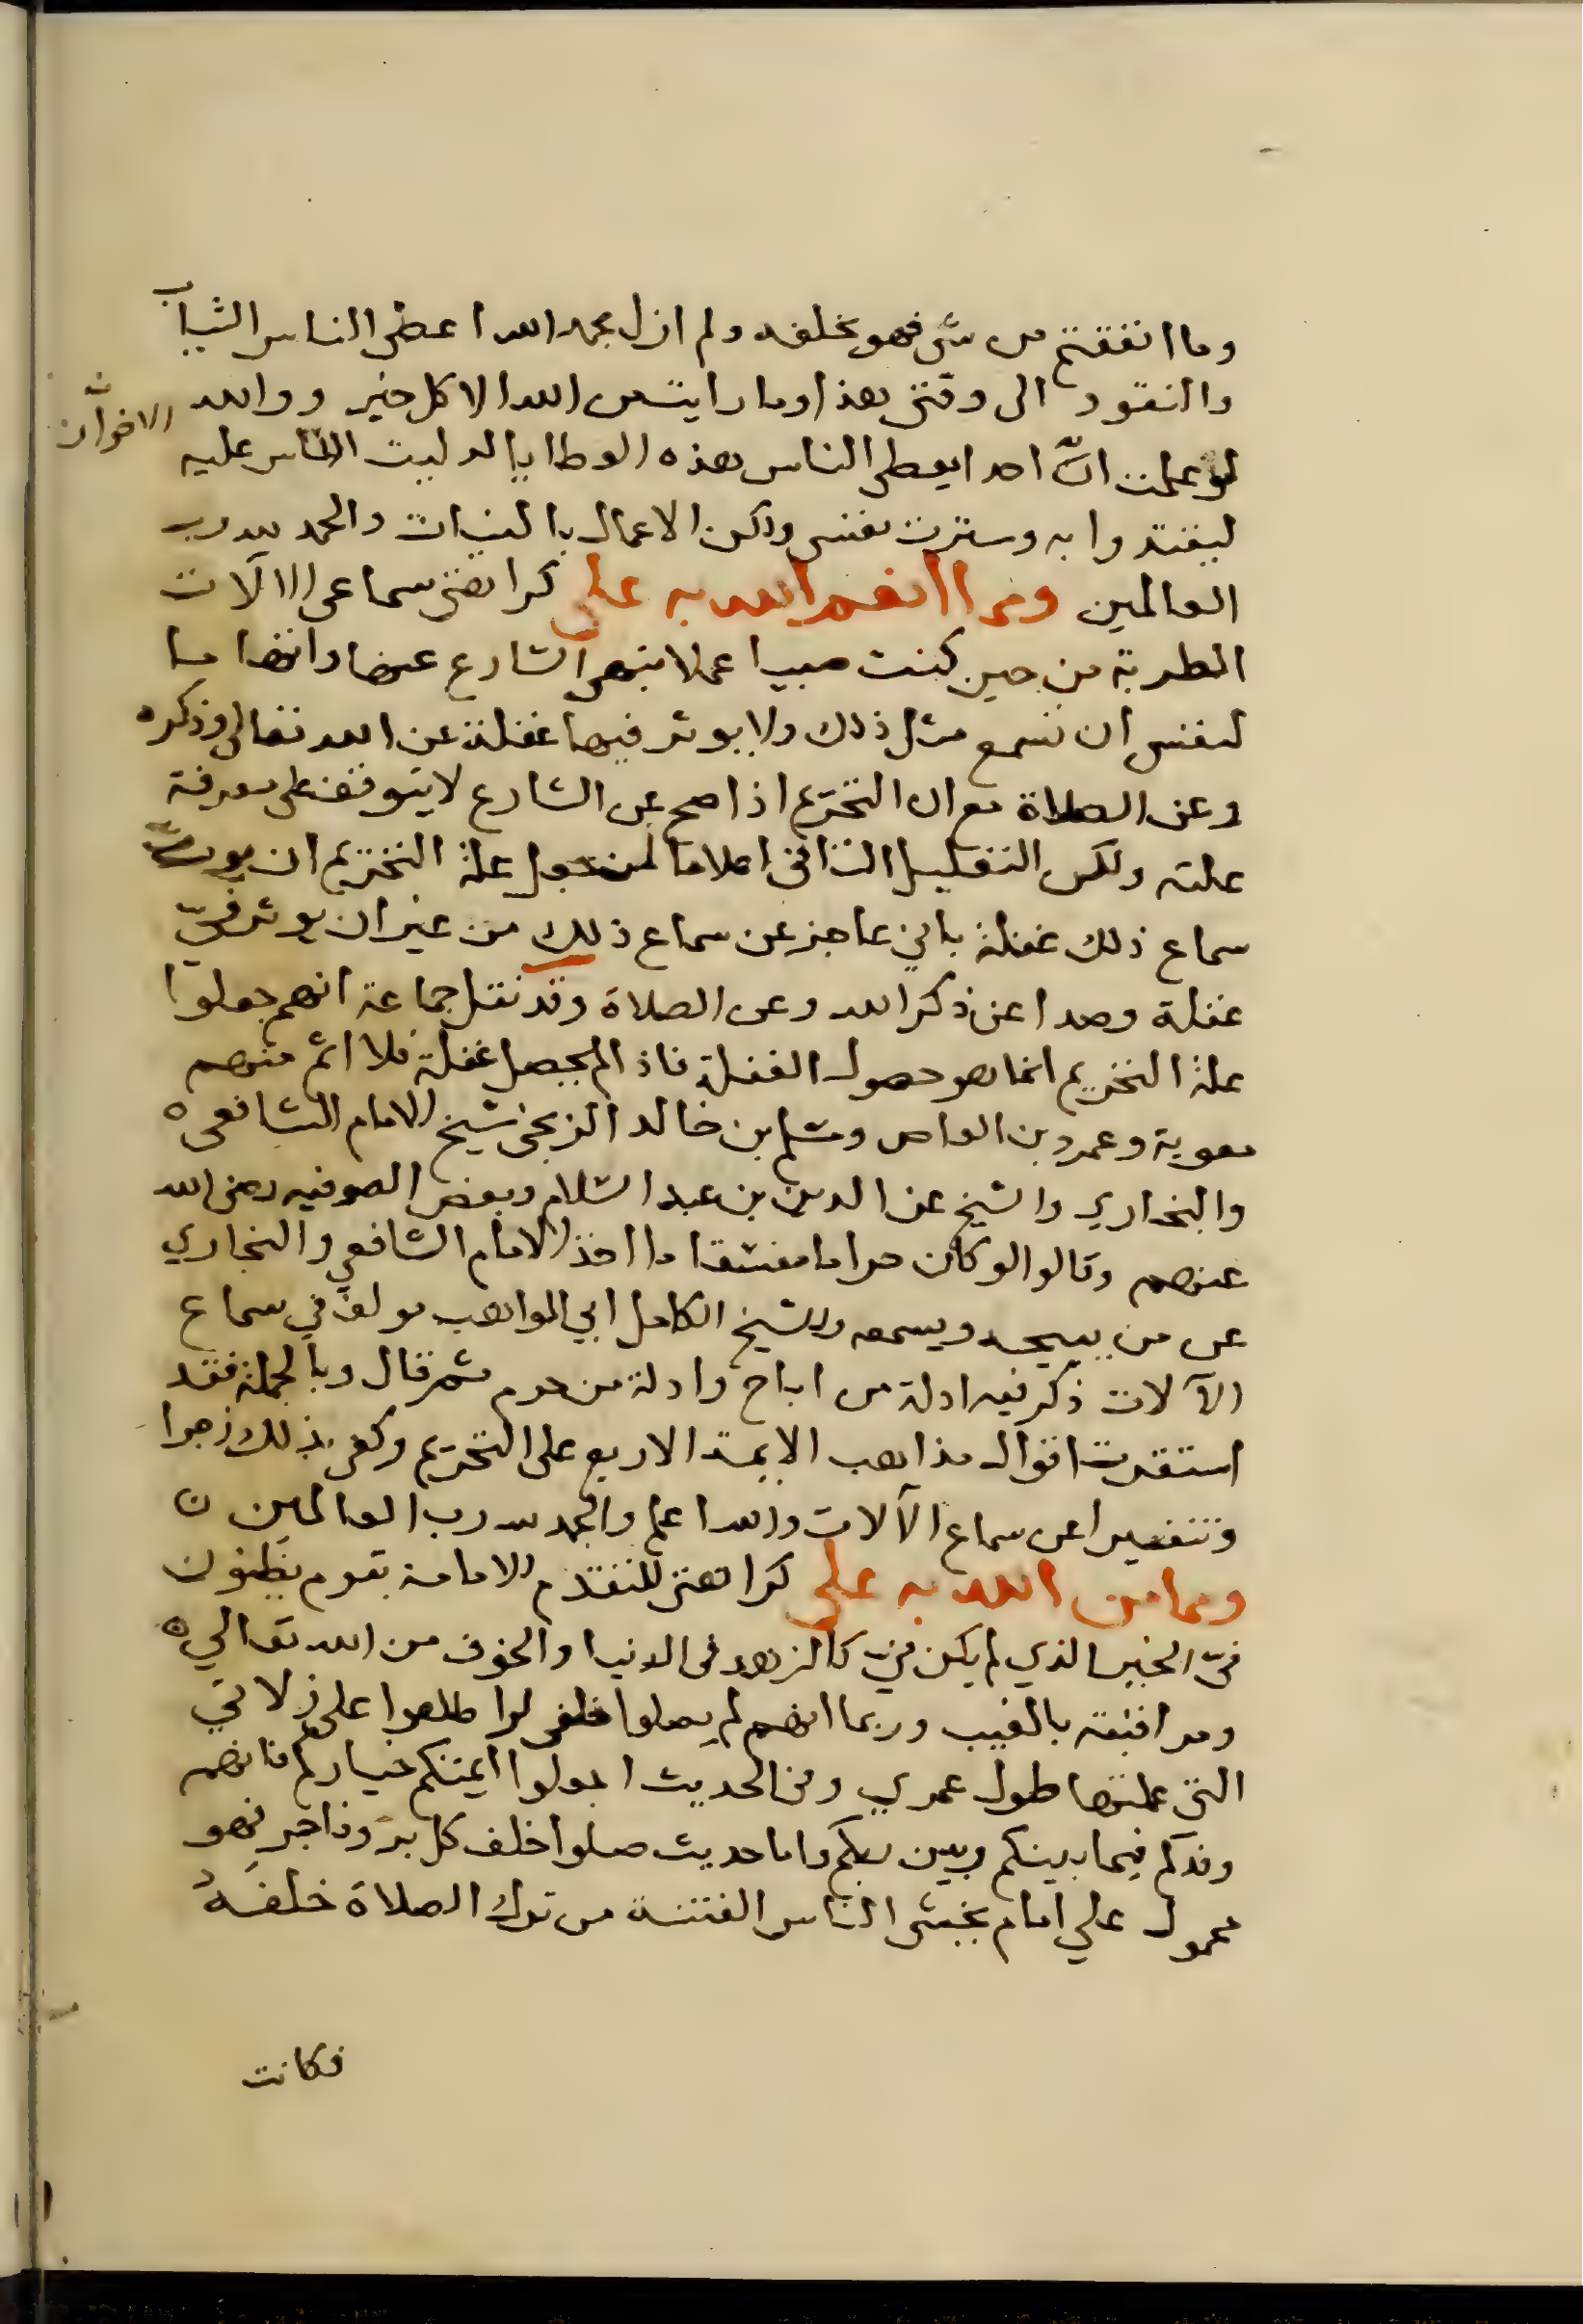 وما انفقتم من شي فهو يخلفه ولم ازل بحمد الله اعطى الناس الثياب
والنقود الى وقتى هذا وما رايت من الله الا كل خير ووالله
الاخوان
لو علمت انّ احدا يعطى الناس هذه العطايا لدليت الناس عليه
ليقتدوا به وسترت نفسى ولكن الاعمال بالنيات والحمد لله رب
العالمين ومما انعم الله به على كراهتى سماعى الالات
المطربة من حين كنت صبيا عملا بنهى الشارع عنها واتهاما
لنفسى ان تسمع مثل ذلك ولا يوثر فيها غفلة عن الله تعالى وذكره
وعن الصلاة مع ان التحريم اذا صح عن الشارع لا يتوقف على معرفة
علته ولكن التعليل الثانى اعلاما لمن جعل علة التحريم ان يورث
سماع ذلك غفلة بانى عاجز عن سماع ذلك من غير ان يوثر فيّ
غفلة وصدا عن ذكر الله وعن الصلاة وقد نقل جماعة انهم جعلوا
علة التحريم انما هو حصول الغفلة فاذا لم يحصل غفلة فلا اثم منهم
معوية وعمرو بن العاص ومسلم بن خالد الزنجى شيخ الامام الشافعى
والبخاري والشيخ عز الدين بن عبد السلام وبعض الصوفيه رضى الله
عنهم وقالوا لو كان حراما مفسقا ما اخذ الامام الشافعي والبخاري
عن من يبيحه ويسمعه وللشيخ الكامل ابي المواهب مولف في سماع
الآلات ذكر فيه ادلة من اباح وادلة من حرم ثم قال وبالجملة فقد
استقرت اقوال مذاهب الايمة الاربع على التحريم وكفى بذلك زجرا
وتنفيرا عن سماع الآلات والله اعلم والحمد لله رب العالمين
ومما من الله به على كراهتى للتقدم للامامة بقوم يظنون
فيّ الخير الذي لم يكن فيّ كالزهد فى الدنيا والخوف من الله تعالي
ومراقبته بالغيب وربما انهم لم يصلوا خلفى لو اطلعوا على زلاتي
التى عملتها طول عمري وفى الحديث اجعلوا ايمتكم خياركم فانهم
وفدكم فيما بينكم وبين ربكم واما حديث صلوا خلف كل بر وفاجر فهو
محمول علي امام يخشى الناس الفتنة من ترك الصلاة خلفه
فكانت